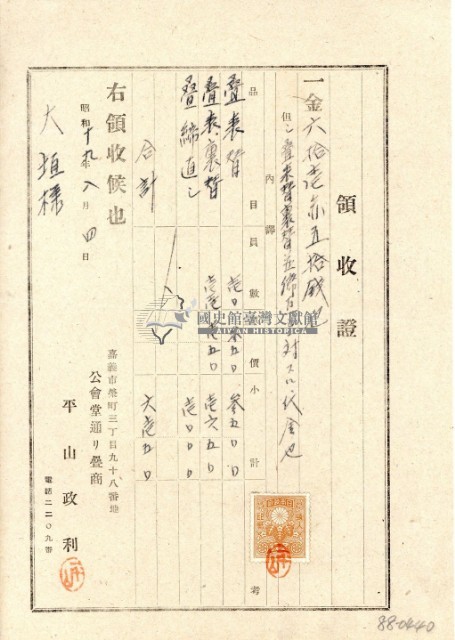 領收證
一金六拾壱円五拾銭也
但シ疊表替裏替並締直シニ対スル代金也
內譯
品 目 員數 單價 小計 考
疊表替 壱〇 参五〇 参五〇〇
疊表裏替 壱六五〇
疊締直シ 壱〇〇〇
合計 六壱五〇
右領收候也
昭和十九年八月四日
大垣様
嘉義市榮町三丁目九十八番地
公會堂通り疊商
平山政利
電話二二〇九番
國史館臺灣文獻館
TAIWAN HISTORICA
88-0440